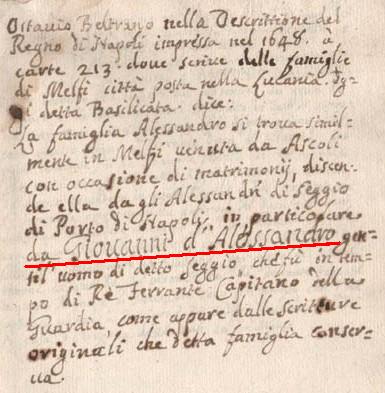 Ottavio Beltrano nella Descrittione del
Regno di Napoli impressa nel 1648. à
carte 213. doue scriue delle famiglie
di Melfi città posta nella Lucania. og=
gi detta Basilicata. dice:
La famiglia Alessandro si troua simil=
mente in Melfi venuta da Ascoli
con occasione di matrimonij, discen=
de ella dagli Alessandri di Seggio
di Porto di Napoli, in particolare
da Giouanni d'Alessandro gen=
til'uomo di detto seggio che fù in tem=
po di Rè Ferrante Capitano della
Guardia, come appare dalle scritture
originali che detta famiglia conser=
ua.